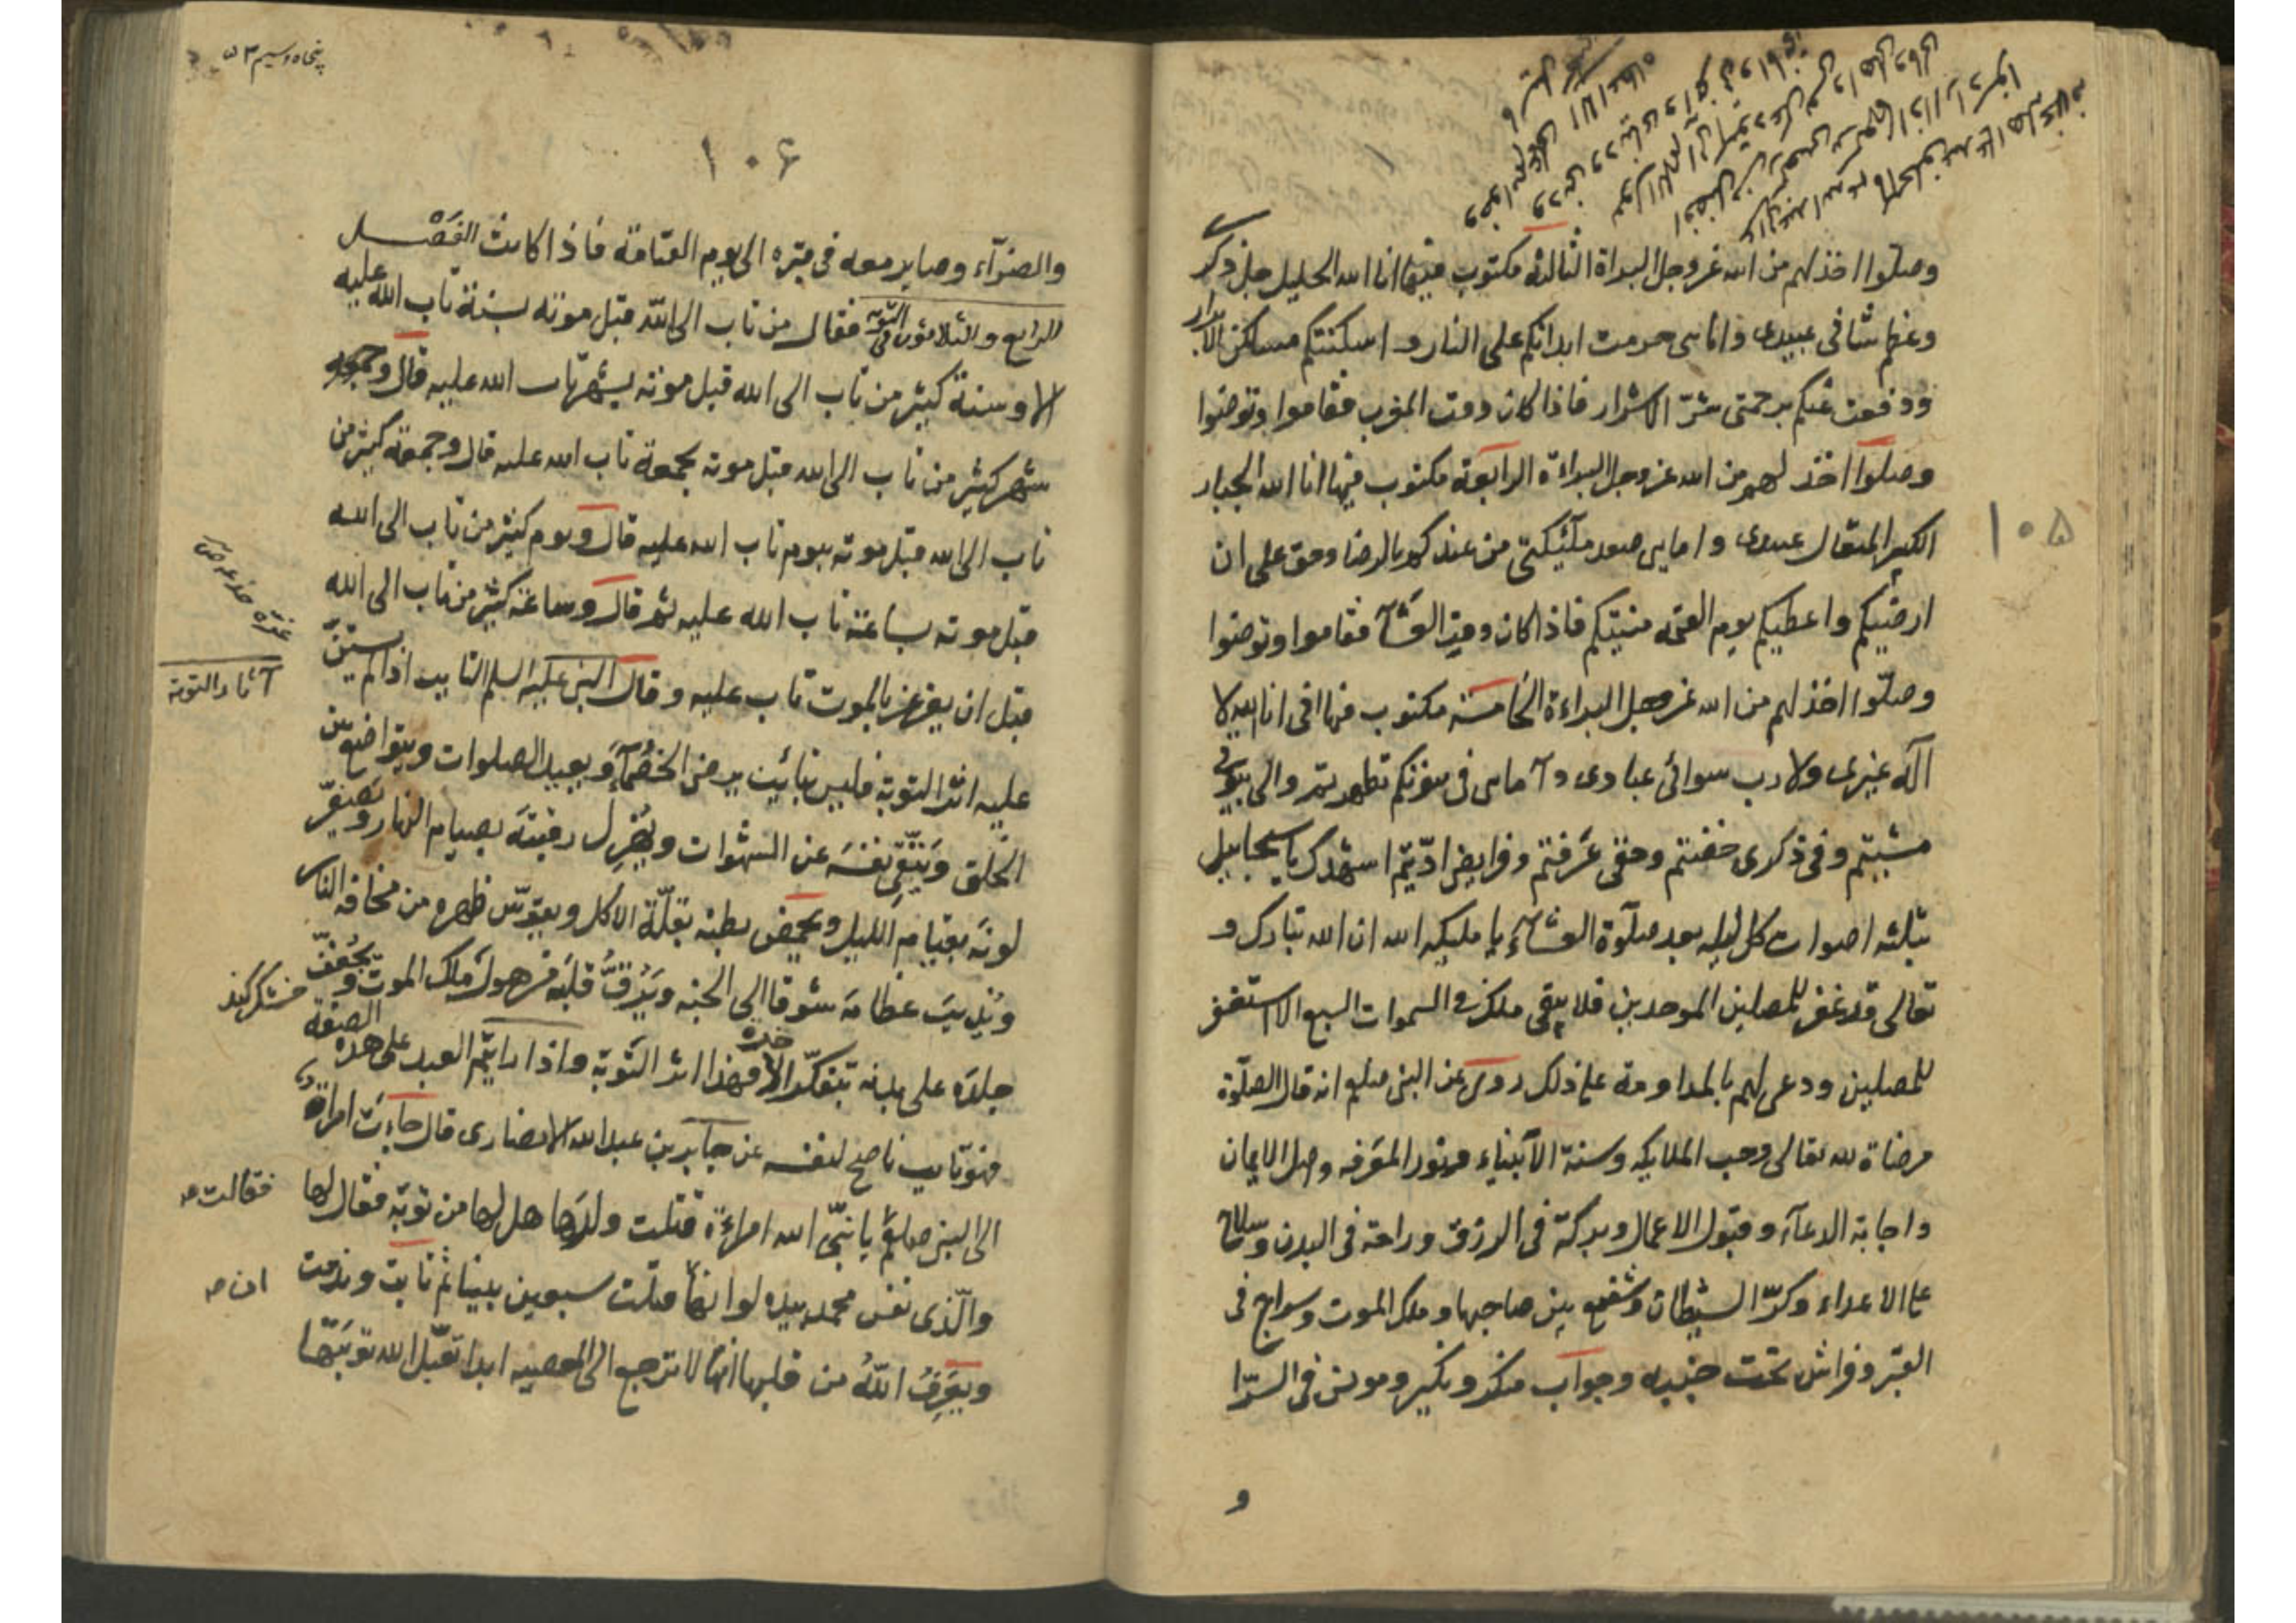 وصلوا اخذ لهم من الله عز وجل البراة الثالثة مكتوب فيها انا الله الجليل جل ذكرى
وعظم شانى عبيدى وامائى حرمت ابدانكم على النار واسكنتكم مساكن الابرار
ودفعت عنكم برحمتى شرّ الاشرار فاذا كان وقت المغرب فقاموا وتوضؤا
وصلوا اخذ لهم من الله عز وجل البراءة الرابعة مكتوب فيها انا الله الجبار
الكبير المتعال عبيدى وامايى صعد ملٓئكتى من عندكم بالرضا وحق على ان
ارضيكم واعطيكم يوم القيمة منيتكم فاذا كان وقت العشآ فقاموا وتوضوا
وصلّوا اخذ لهم من الله عز وجل البراءة الخامسة مكتوب فيها انى انا الله لا
اله غيرى ولا رب سوائى عبادى وآمايى فى بيوتكم تطهرتم والى بيوتى
مشيتم وفى ذكرى خضتم وحقى عرفتم وفرايضى ادّيتم اشهدك يا سخاييل
بثلثه اصوات كل ليله بعد صلوٓة العشاء يا مليكه الله ان الله تبارك و
تعالى قد غفر للمصلين الموحدين فلا يبقى ملك فى السموات السبع الا استغفر
للمصلين ودعى لهم بالمداومة على ذلك روى عن النبى صلعم انه قال الصلٓوة
مرضاة لله تعالى وحب الملايكه وسنة الانبياء ونور المعرفه واصل الايمان
واجابة الدعآء وقبول الاعمال وبركة فى الرزق وراحة فى البدن وسلاح
على الاعداء وكرة الشيطان وشفيع بين صاحبها وملك الموت وسراج فى
القبر وفراش تحت جنبيه وجواب منكر ونكير ومونس فى السرّا
و
١٠٥
پنجاه وسيم ٥٣
١٠۶
والضرّآء وصاير معه فى قبره الى يوم القيامة فاذا كانت الفصل
الرابع والثلاثون فى التوبه فقال من تاب الى الله قبل موته بسنة تاب الله عليه
الا وسنة كثير من تاب الى الله قبل موته بشهر تاب الله عليه قال و
شهر كثير من تاب الى الله قبل موته بجمعة تاب الله عليه قال وجمعة كثير من
تاب الى الله قبل موته بيوم تاب الله عليه قال ويوم كثير من تاب الى الله
قبل موته بساعة تاب الله عليه ثم قال وساعة كثير من تاب الى الله
قبل ان يغرغر بالموت تاب عليه وقال النبى عليه السلم التايب اذا لم يستبن
عليه اثر التوبة فليس بتائيب يرضى الخصمآء ويعيد الصلوات ويتواضع بين
الخلق ويتّقى نفسه عن الشهوات ويهزل رقبته بصيام النهار ويصفرّ
لونه بقيام الليل ويخمص بطنه بقلّة الاكل ويقوّس ظهره من مخافه النار
ويذيب عظامه شوقا الى الجنه ويرقّ قلبه من هول ملك الموت ويجفّف
جلده على بدنه بتفكّر الاخرة فهذا اثر التّوبة واذا رايتم العبد على هذه الصفة
فهو تايب ناصح لنفسه عن جابر بن عبد الله الانصارى قال جاءت امراة
الى النبى صلعم يا نبىّ الله امراءة قتلت ولدها هل لها من توبة فقال لها
والّذى نفس محمد بيده لو انها قتلت سبعين نبينا ثم تابت وندمت
ويعرف الله من قلبها انها لا ترجع الى المعصيه ابدا تقبل الله توبتها
آثار التوبة
خشك كند
فقالت